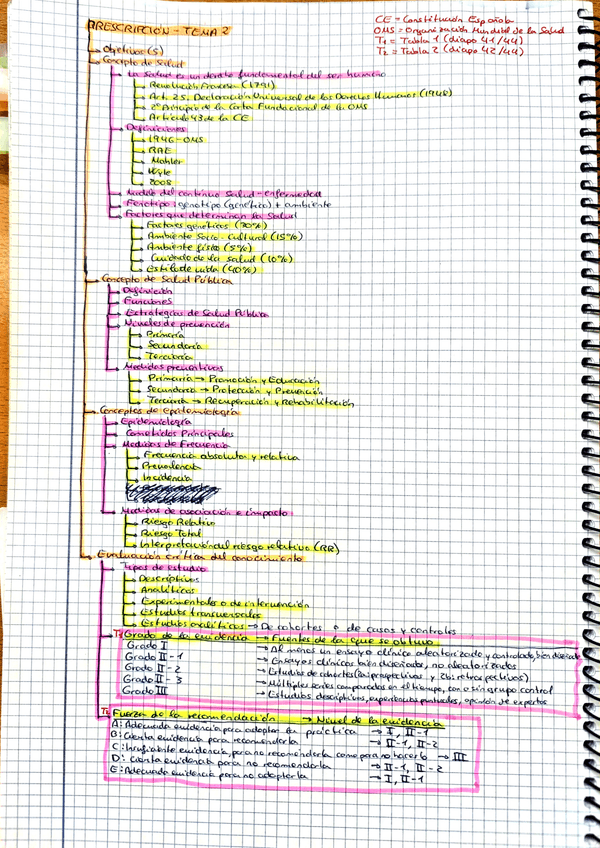 PRESCRIPCIÓN - TEMA 2
CE = Constitución Española
OMS = Organización Mundial de la Salud
T1 = Tabla 1 (diapo 41/44)
T2 = Tabla 2 (diapo 42/44)
Objetivos (5)
Concepto de Salud
La salud es un derecho fundamental del ser humano
Revolución Francesa (1791)
Art. 25. Declaración Universal de los Derechos Humanos (1948)
2º Principio de la Carta Fundacional de la OMS
Artículo 43 de la CE
Definiciones
1946-OMS
RAE
Mahler
Wyle
2008
Modelo del continuo Salud-enfermedad
Fenotipo: genotipo (genético) + ambiente
Factores que determinan la Salud
Factores genéticos (30%)
Ambiente Socio-Cultural (15%)
Ambiente físico (5%)
Cuidado de la salud (10%)
Estilo de vida (40%)
Concepto de Salud Pública
Definición
Funciones
Estrategias de Salud Pública
Niveles de prevención
Primaria
Secundaria
Terciaria
Medidas preventivas
Primaria → Promoción y Educación
Secundaria → Protección y Prevención
Terciaria → Recuperación y Rehabilitación
Conceptos de Epidemiología
Epidemiología
Cometidos Principales
Medidas de Frecuencia
Frecuencia absoluta y relativa
Prevalencia
Incidencia
Medidas de asociación e impacto
Riesgo Relativo
Riesgo Total
Interpretación del riesgo relativo (RR)
Evaluación crítica del conocimiento
Tipos de estudio
Descriptivos
Analíticos
Experimentales o de intervención
Estudios transversales
Estudios analíticos → De cohortes o de casos y controles
T1 Grado de la evidencia → Fuentes de la que se obtuvo
Grado I → Al menos un ensayo clínico aleatorizado y controlado, bien diseñado
Grado II-1 → Ensayos clínicos bien diseñados, no aleatorizados
Grado II-2 → Estudios de cohortes (prospectivos y retrospectivos)
Grado II-3 → Múltiples series comparadas en el tiempo, con o sin grupo control
Grado III → Estudios descriptivos, experiencias puntuales, opinión de expertos
T2 Fuerza de la recomendación → Nivel de la evidencia
A: Adecuada evidencia para adoptar la práctica → I, II-1
B: Cierta evidencia para recomendarla → II-1, II-2
C: Insuficiente evidencia, para no recomendarla como para no hacerlo → III
D: Cierta evidencia para no recomendarla → II-1, II-2
E: Adecuada evidencia para no adoptarla → I, II-1